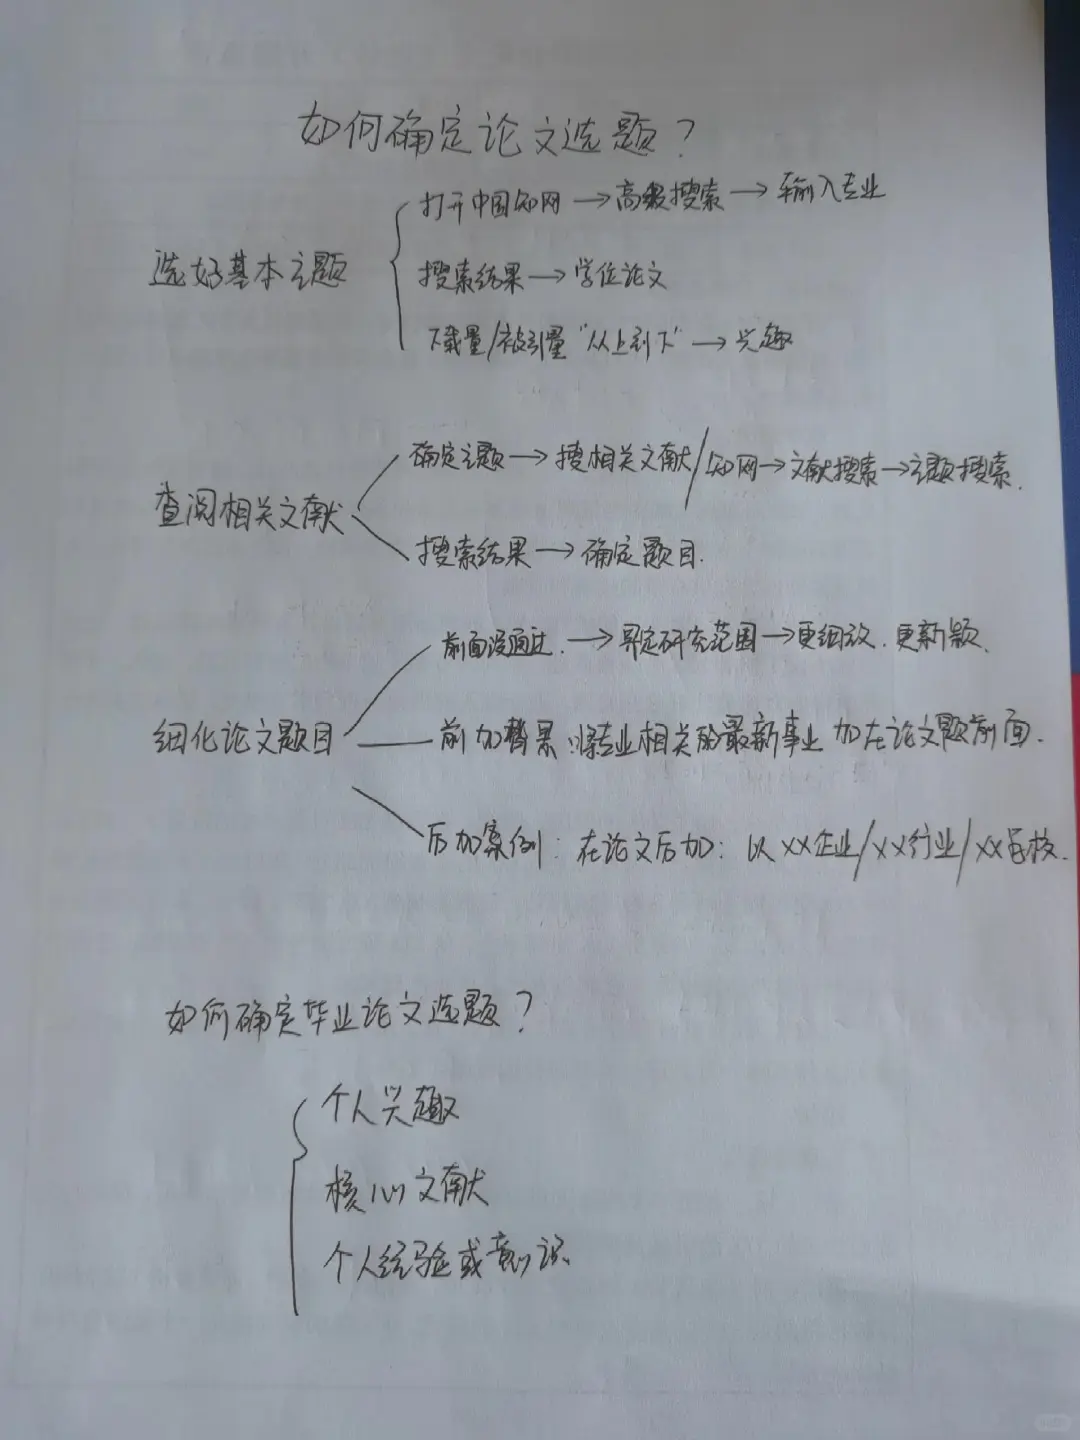 如何确定论文选题？
打开中国知网→高级搜索→输入专业
选好基本主题
搜索结果→学位论文
下载量/被引量"从上到下"→兴趣
确定主题→搜相关文献/知网→文献搜索→主题搜索.
查阅相关文献
搜索结果→确定题目.
前面没通过.→界定研究范围→更细致.更新颖.
细化论文题目
前加背景:将专业相关的最新事业加在论文题前面.
后加案例:在论文后加:以XX企业/XX行业/XX学校.
如何确定毕业论文选题？
个人兴趣
核心文献
个人经验或意识